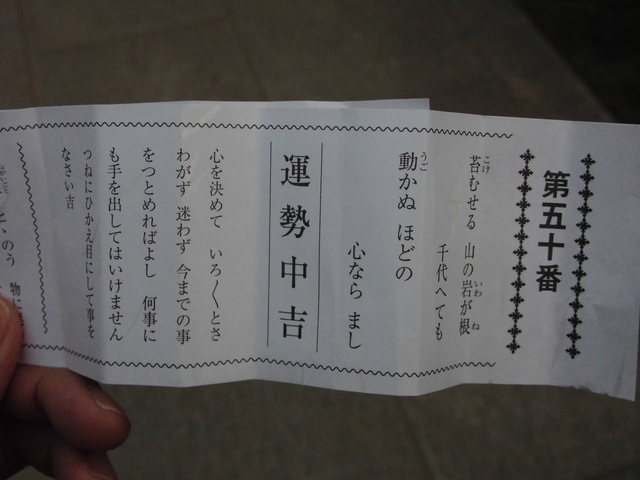 第五十番
苔むせる 山の岩が根
こけ いわ ね
千代へても
動かぬ ほどの
うご
心なら まし
運勢中吉
心を決めて いろ〳〵とさ
わがず 迷わず 今までの事
をつとめればよし 何事に
も手を出してはいけません
つねにひかえ目にして事を
なさい吉